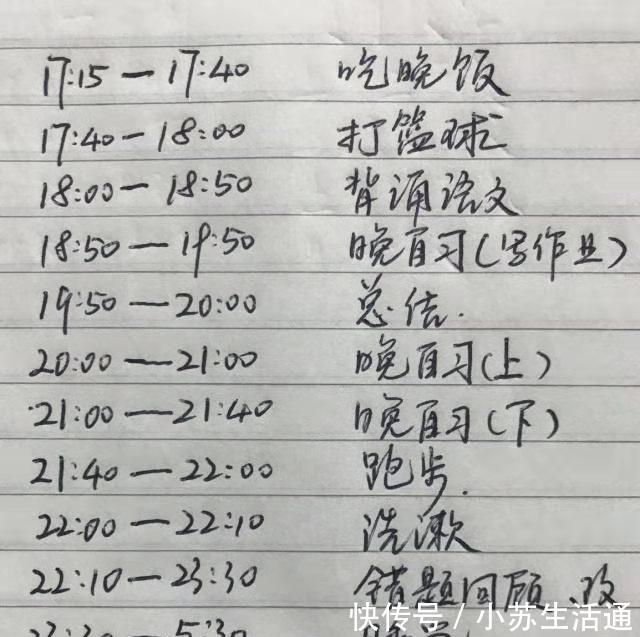 17:15—17:40 吃晚饭
17:40—18:00 打篮球
18:00—18:50 背诵语文
18:50—19:50 晚自习(写作业)
19:50—20:00 总结.
20:00—21:00 晚自习(上)
21:00—21:40 晚自习(下)
21:40—22:00 跑步.
22:00—22:10 洗漱
22:10—23:30 错题回顾、改
快传号/小苏生活通
23:30—5:30